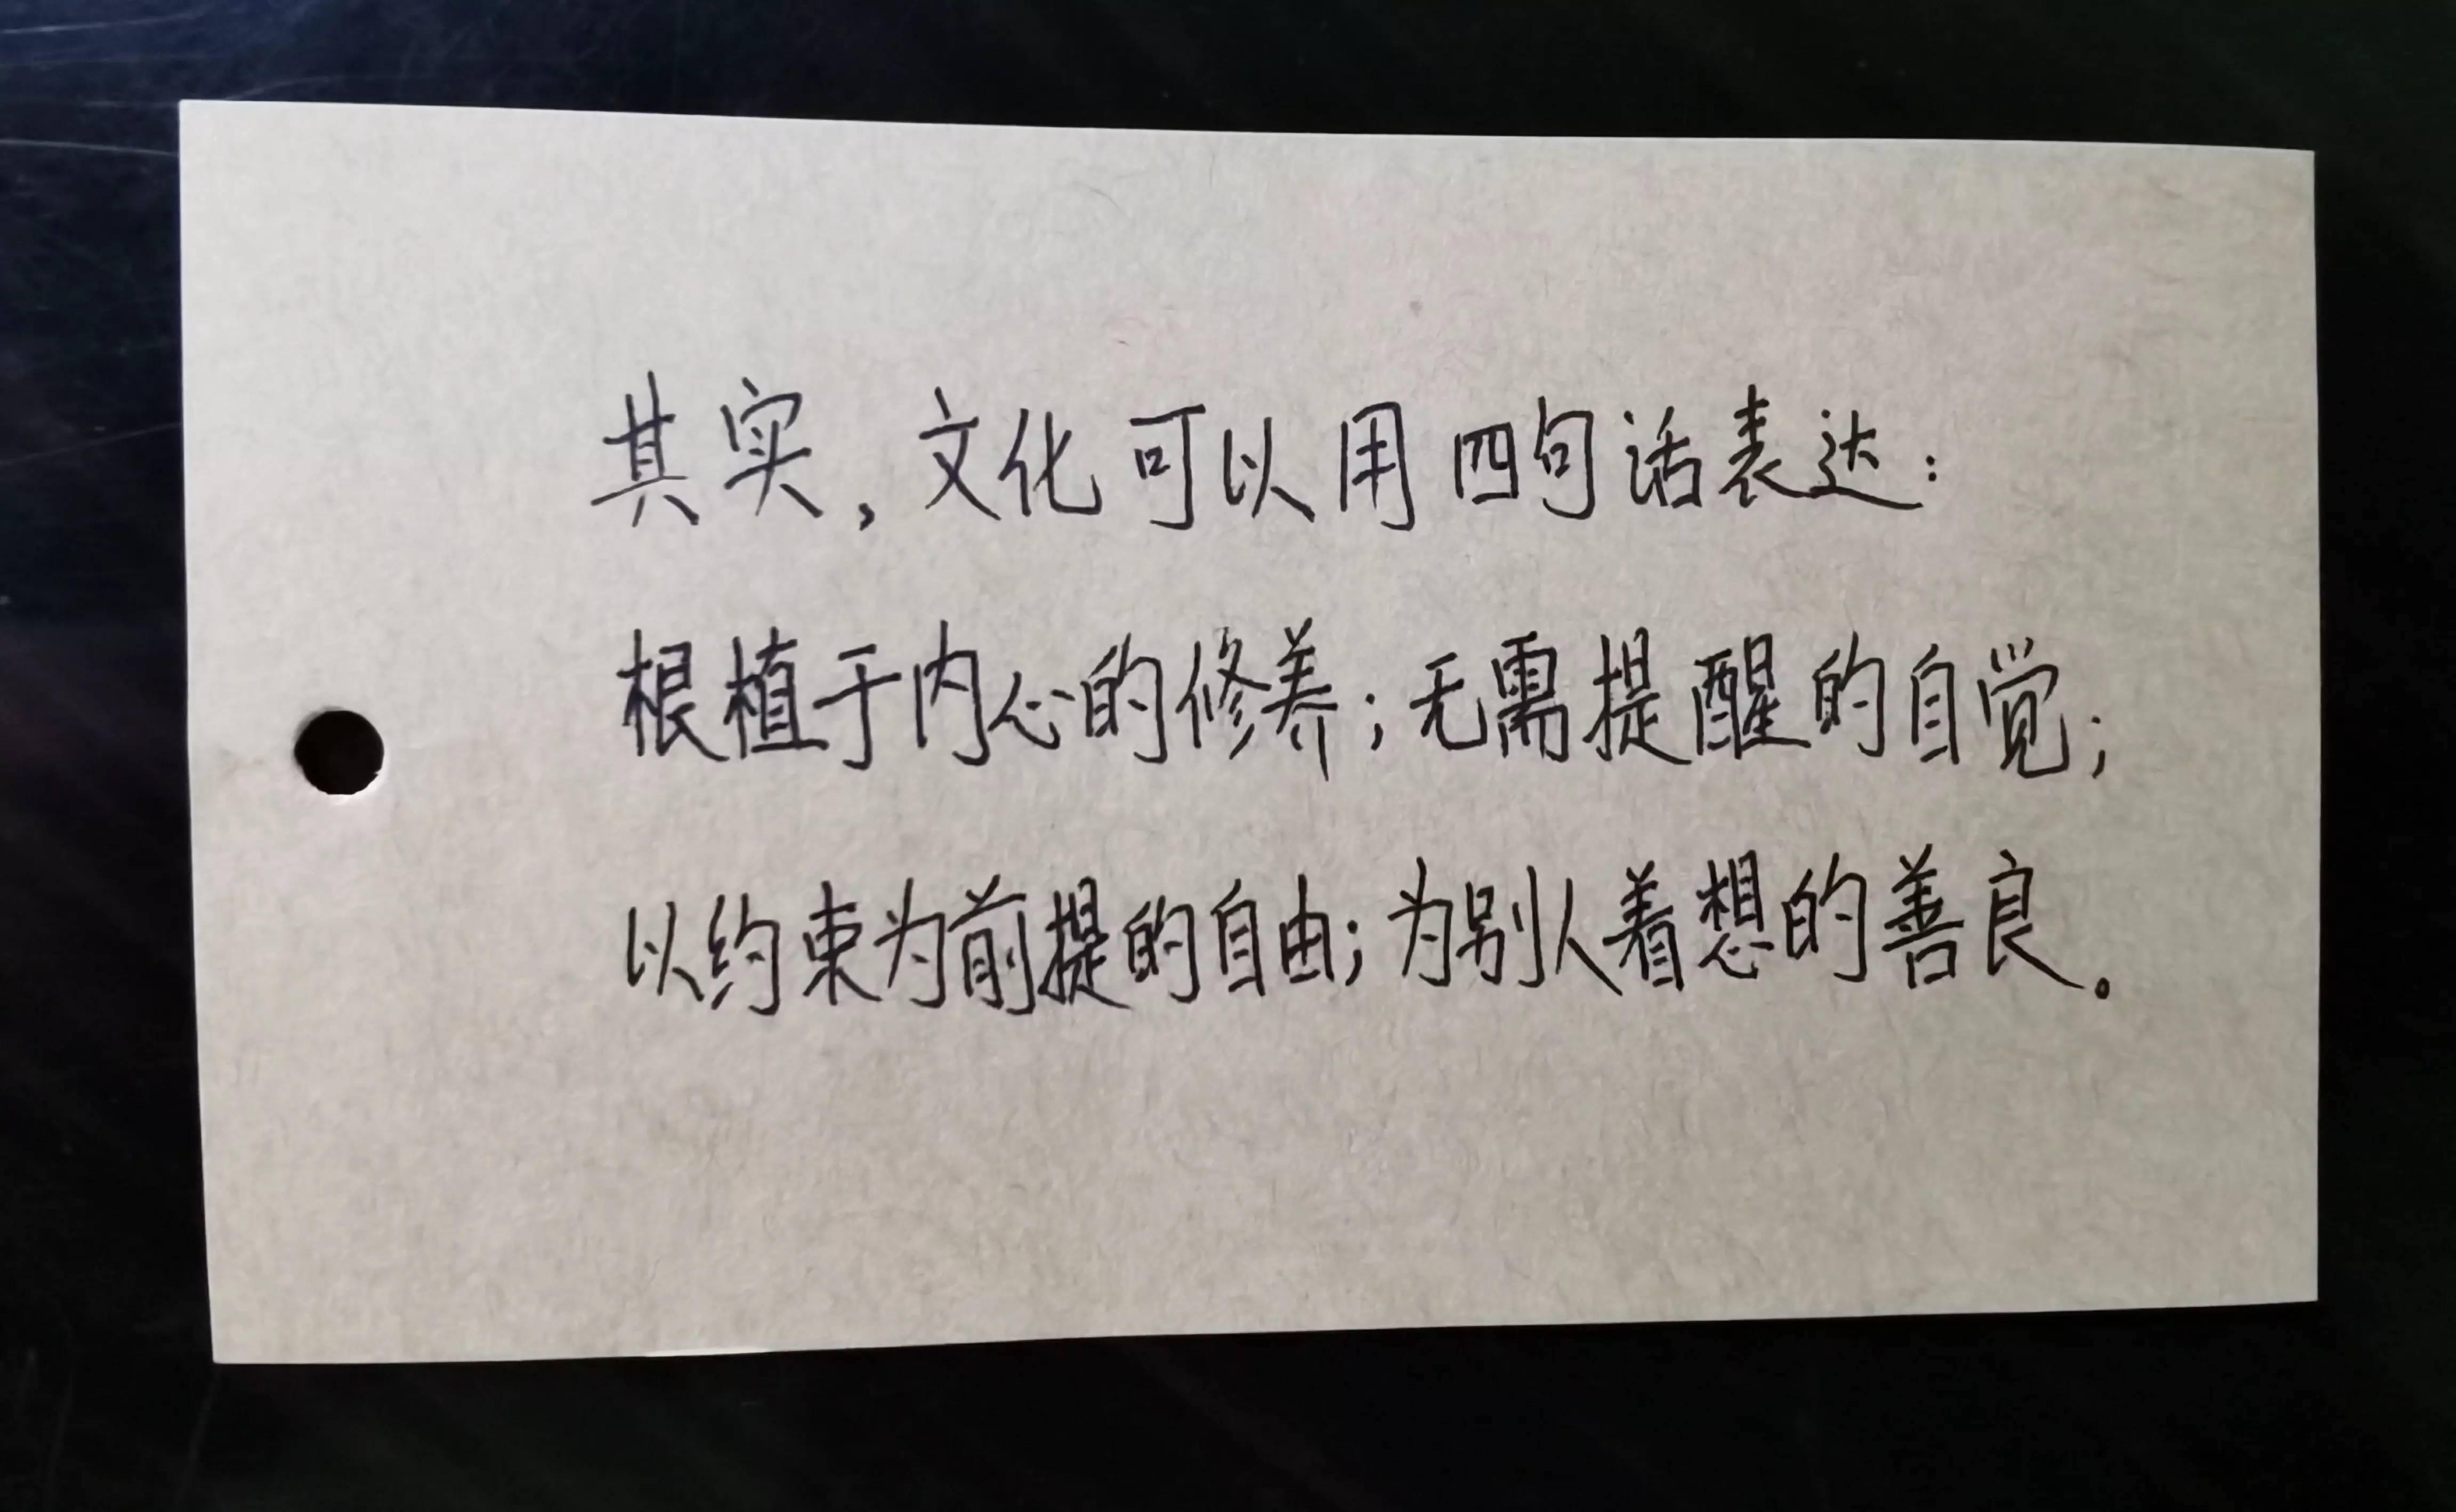 其实，文化可以用四句话表达：
根植于内心的修养；无需提醒的自觉；
以约束为前提的自由；为别人着想的善良。